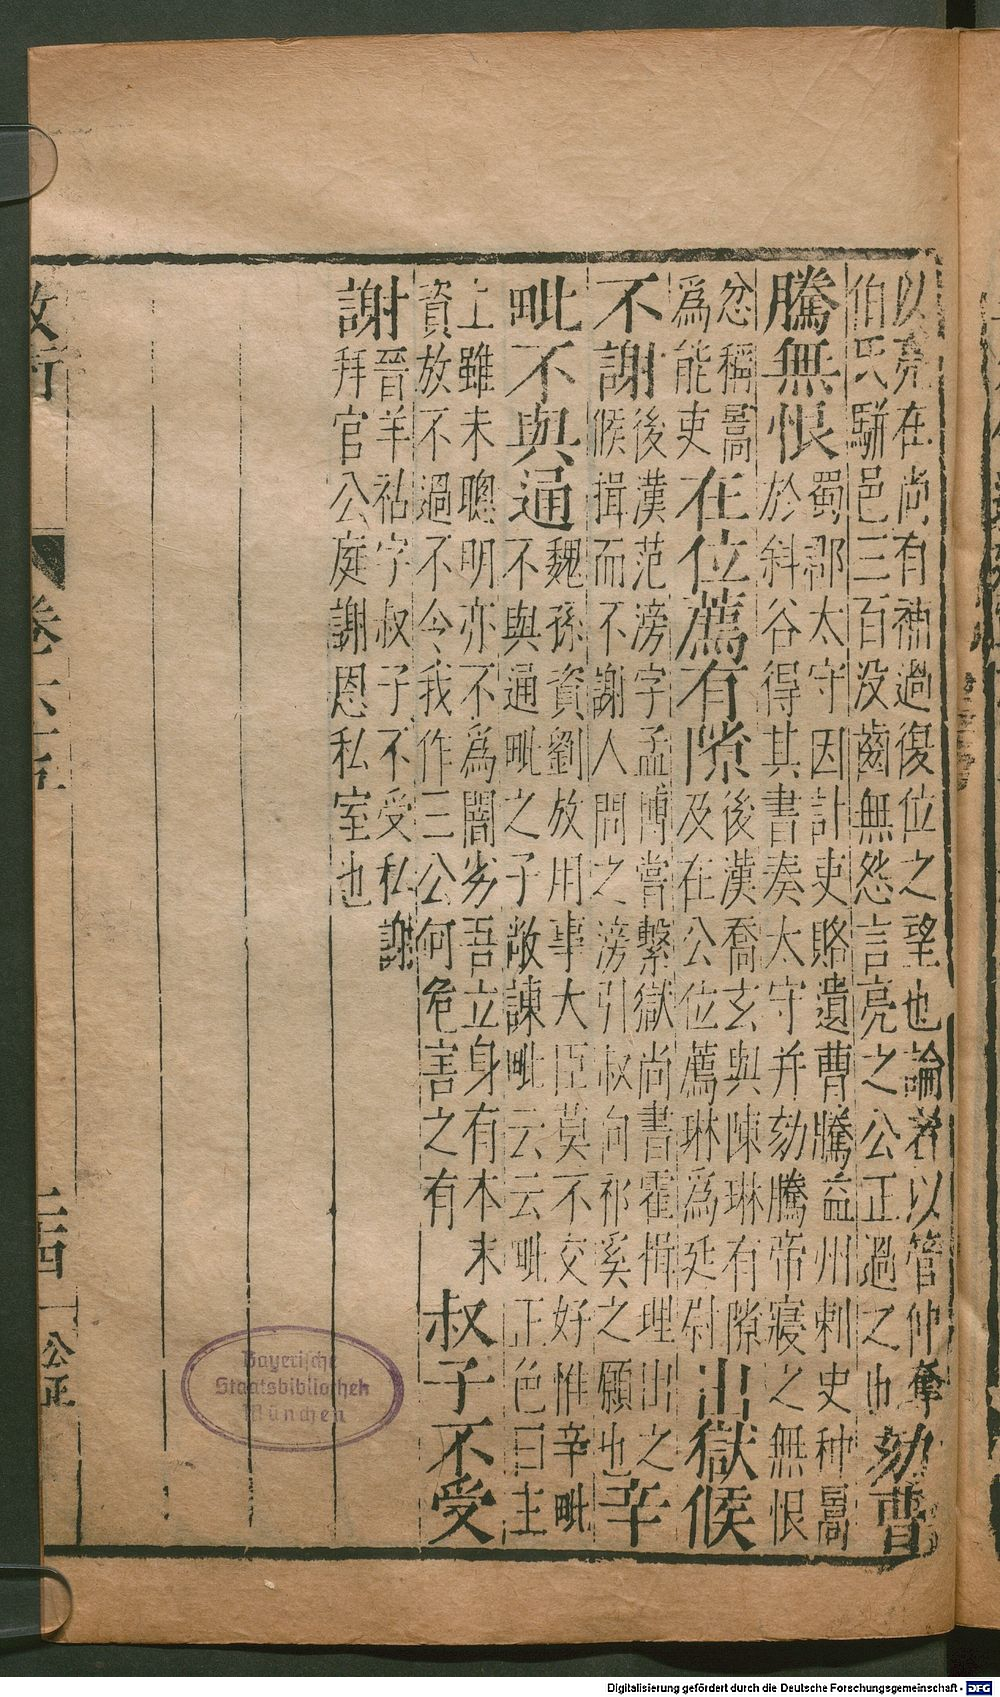 以亮在尚有補過復位之望也論者以管仲奪
伯氏駢邑三百没齒無怨言亮之公正過之也
劾曹
騰無恨
蜀郡太守因計吏賂遺曹騰益州刺史种暠
於斜谷得其書奏太守并劾騰帝寢之無恨
忿稱暠
為能吏
在位薦有隙
後漢喬玄與陳琳有隙
及在公位薦琳為延尉
出獄候
不謝
後漢范滂字孟博嘗繫獄尚書霍揖理出之
候揖而不謝人問之滂引叔向祁奚之願也
辛
毗不與通
魏孫資劉放用事大臣莫不交好惟辛毗
不與通毗之子敞諫毗云云毗正色曰主
上雖未聰明亦不為闇劣吾立身有本末
資放不過不令我作三公何危害之有
叔子不受
謝
晉羊祜字叔子不受私謝
拜官公庭謝恩私室也
卷
二十四
公正
Bayerische
Staatsbibliothek
München
Digitalisierung gefördert durch die Deutsche Forschungsgemeinschaft - DFG